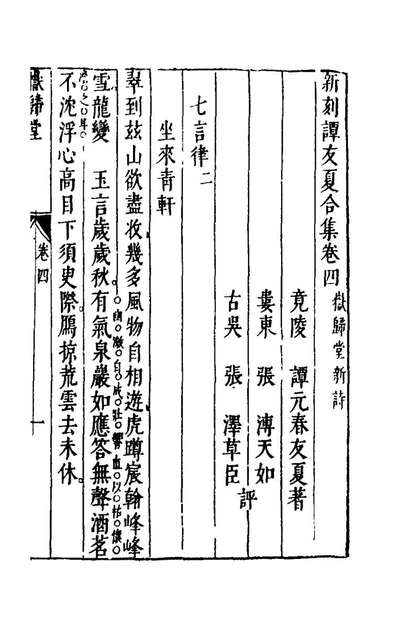 新刻譚友夏合集卷四 嶽歸堂新詩
竟陵 譚元春友夏著
婁東 張 溥天如
古吳 張 澤草臣 評
七言律二
坐來青軒
翠到茲山欲盡收幾多風物自相遊虎蹲宸翰峰峰
雪龍變 玉言歲歲秋有氣泉巖如應答無聲酒茗
幽激自成壯響
不沈浮心高目下須臾際鵰掠荒雲去未休
嶽歸堂
卷四
一